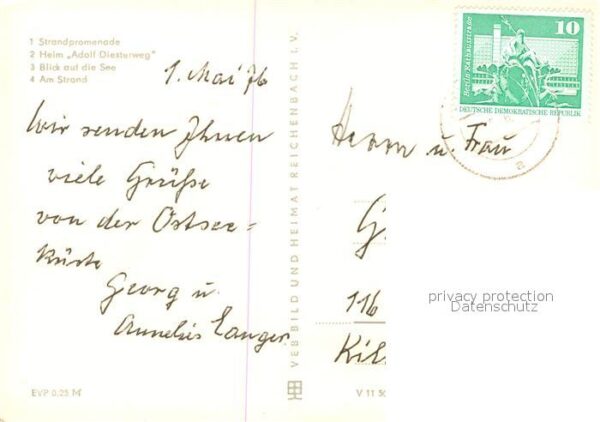 1 Strandpromenade
2 Heim „Adolf Diesterweg"
3 Blick auf die See
4 Am Strand
1. Mai 76
Wir senden Ihnen
viele Grüße
von der Ostsee=
küste
Georg u.
Annelies Langer
EVP 0,25 M
VEB BILD UND HEIMAT REICHENBACH I. V.
10
Berlin, Rathausstraße
DEUTSCHE DEMOKRATISCHE REPUBLIK
Herrn u. Frau
G
116
Kil
privacy protection
Datenschutz
V 11 50